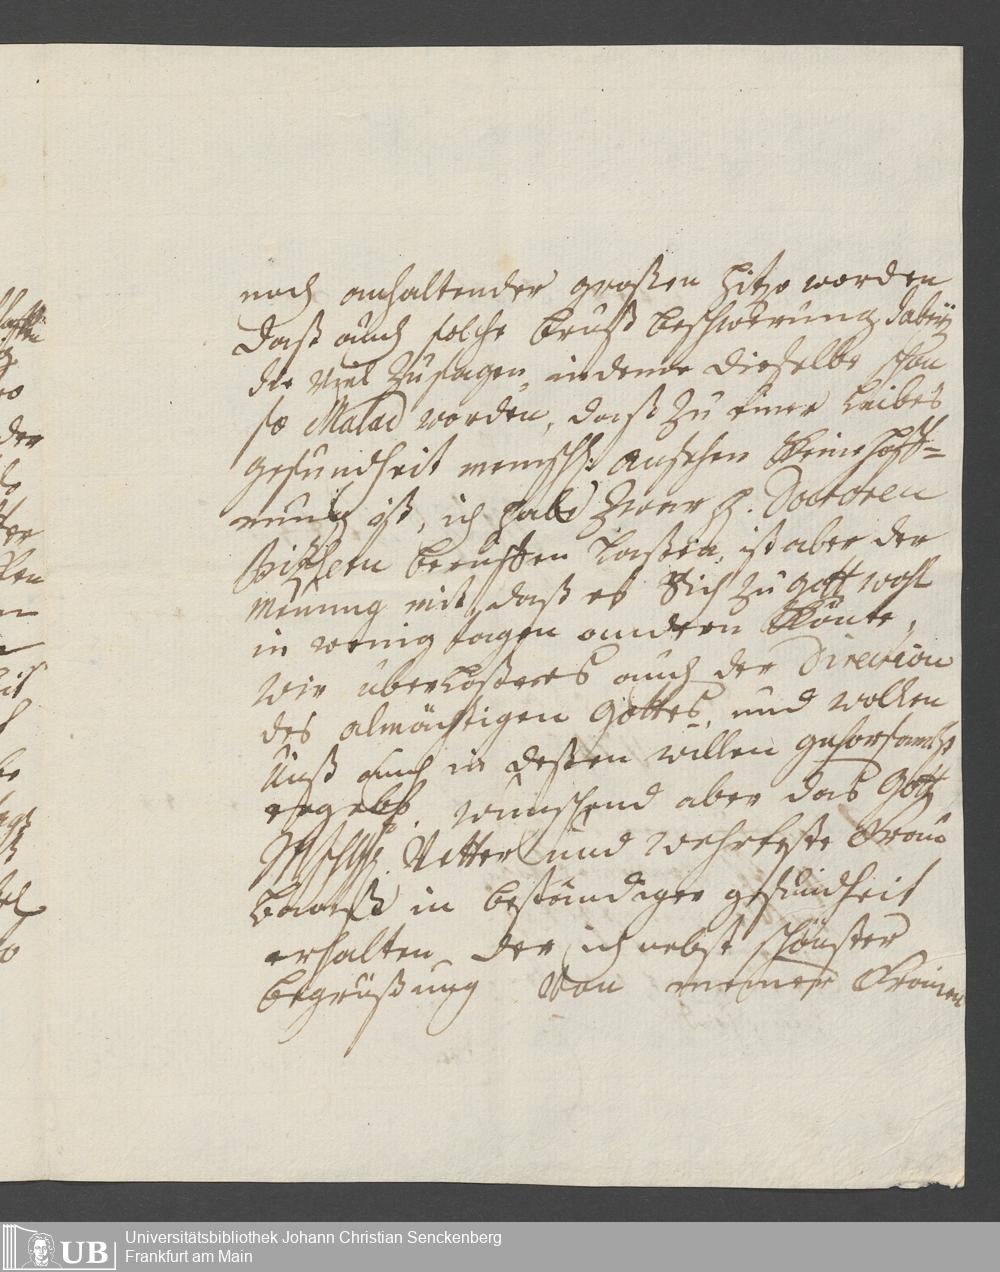 noch anhaltender großen Hitze worden
daß auch solche brust beschwerung dabeÿ
die viel zu sagen, indeme dieselbe schon
so Malad worden, daß zu einer Leibes
gesundheit menschl: ansehen keine hoff=
nung ist, ich habe zwar H. Doctoren
beruffen laßen, ist aber der
meinung mit, daß es sich zu gott wohl
in wenig tagen andern könte,
wir überlaßens auch der Direction
des almächtigen Gottes, und wollen
unß auch in deßen willen gehorsambst
ergeben. wünschend aber das Gott
Vetter und wehrteste Frau
Baaß in beständiger gesundheit
erhalten der ich nebst schönster
begrüßung von meiner Frauen
Universitätsbibliothek Johann Christian Senckenberg
Frankfurt am Main
UB